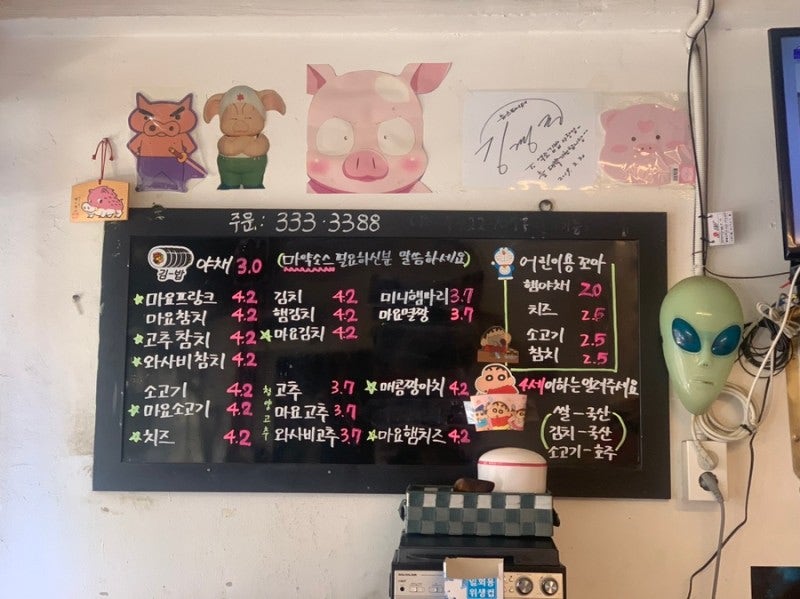 주문: 333·3388
김-밥 야채 3.0 (마약소스 필요하신분 말씀하세요)
마요프랑크 4.2
마요참치 4.2
고추참치 4.2
와사비참치 4.2
김치 4.2
햄김치 4.2
마요김치 4.2
미니햄마리 3.7
마요멸짱 3.7
소고기 4.2
마요소고기 4.2
치즈 4.2
청양고추
고추 3.7
마요고추 3.7
와사비고추 3.7
매콤짱아치 4.2
마요햄치즈 4.2
어린이용 꼬마
햄야채 2.0
치즈 2.5
소고기 2.5
참치 2.5
4세이하는 알려주세요
쌀-국산
김치-국산
소고기-호주
일회용
위생컵